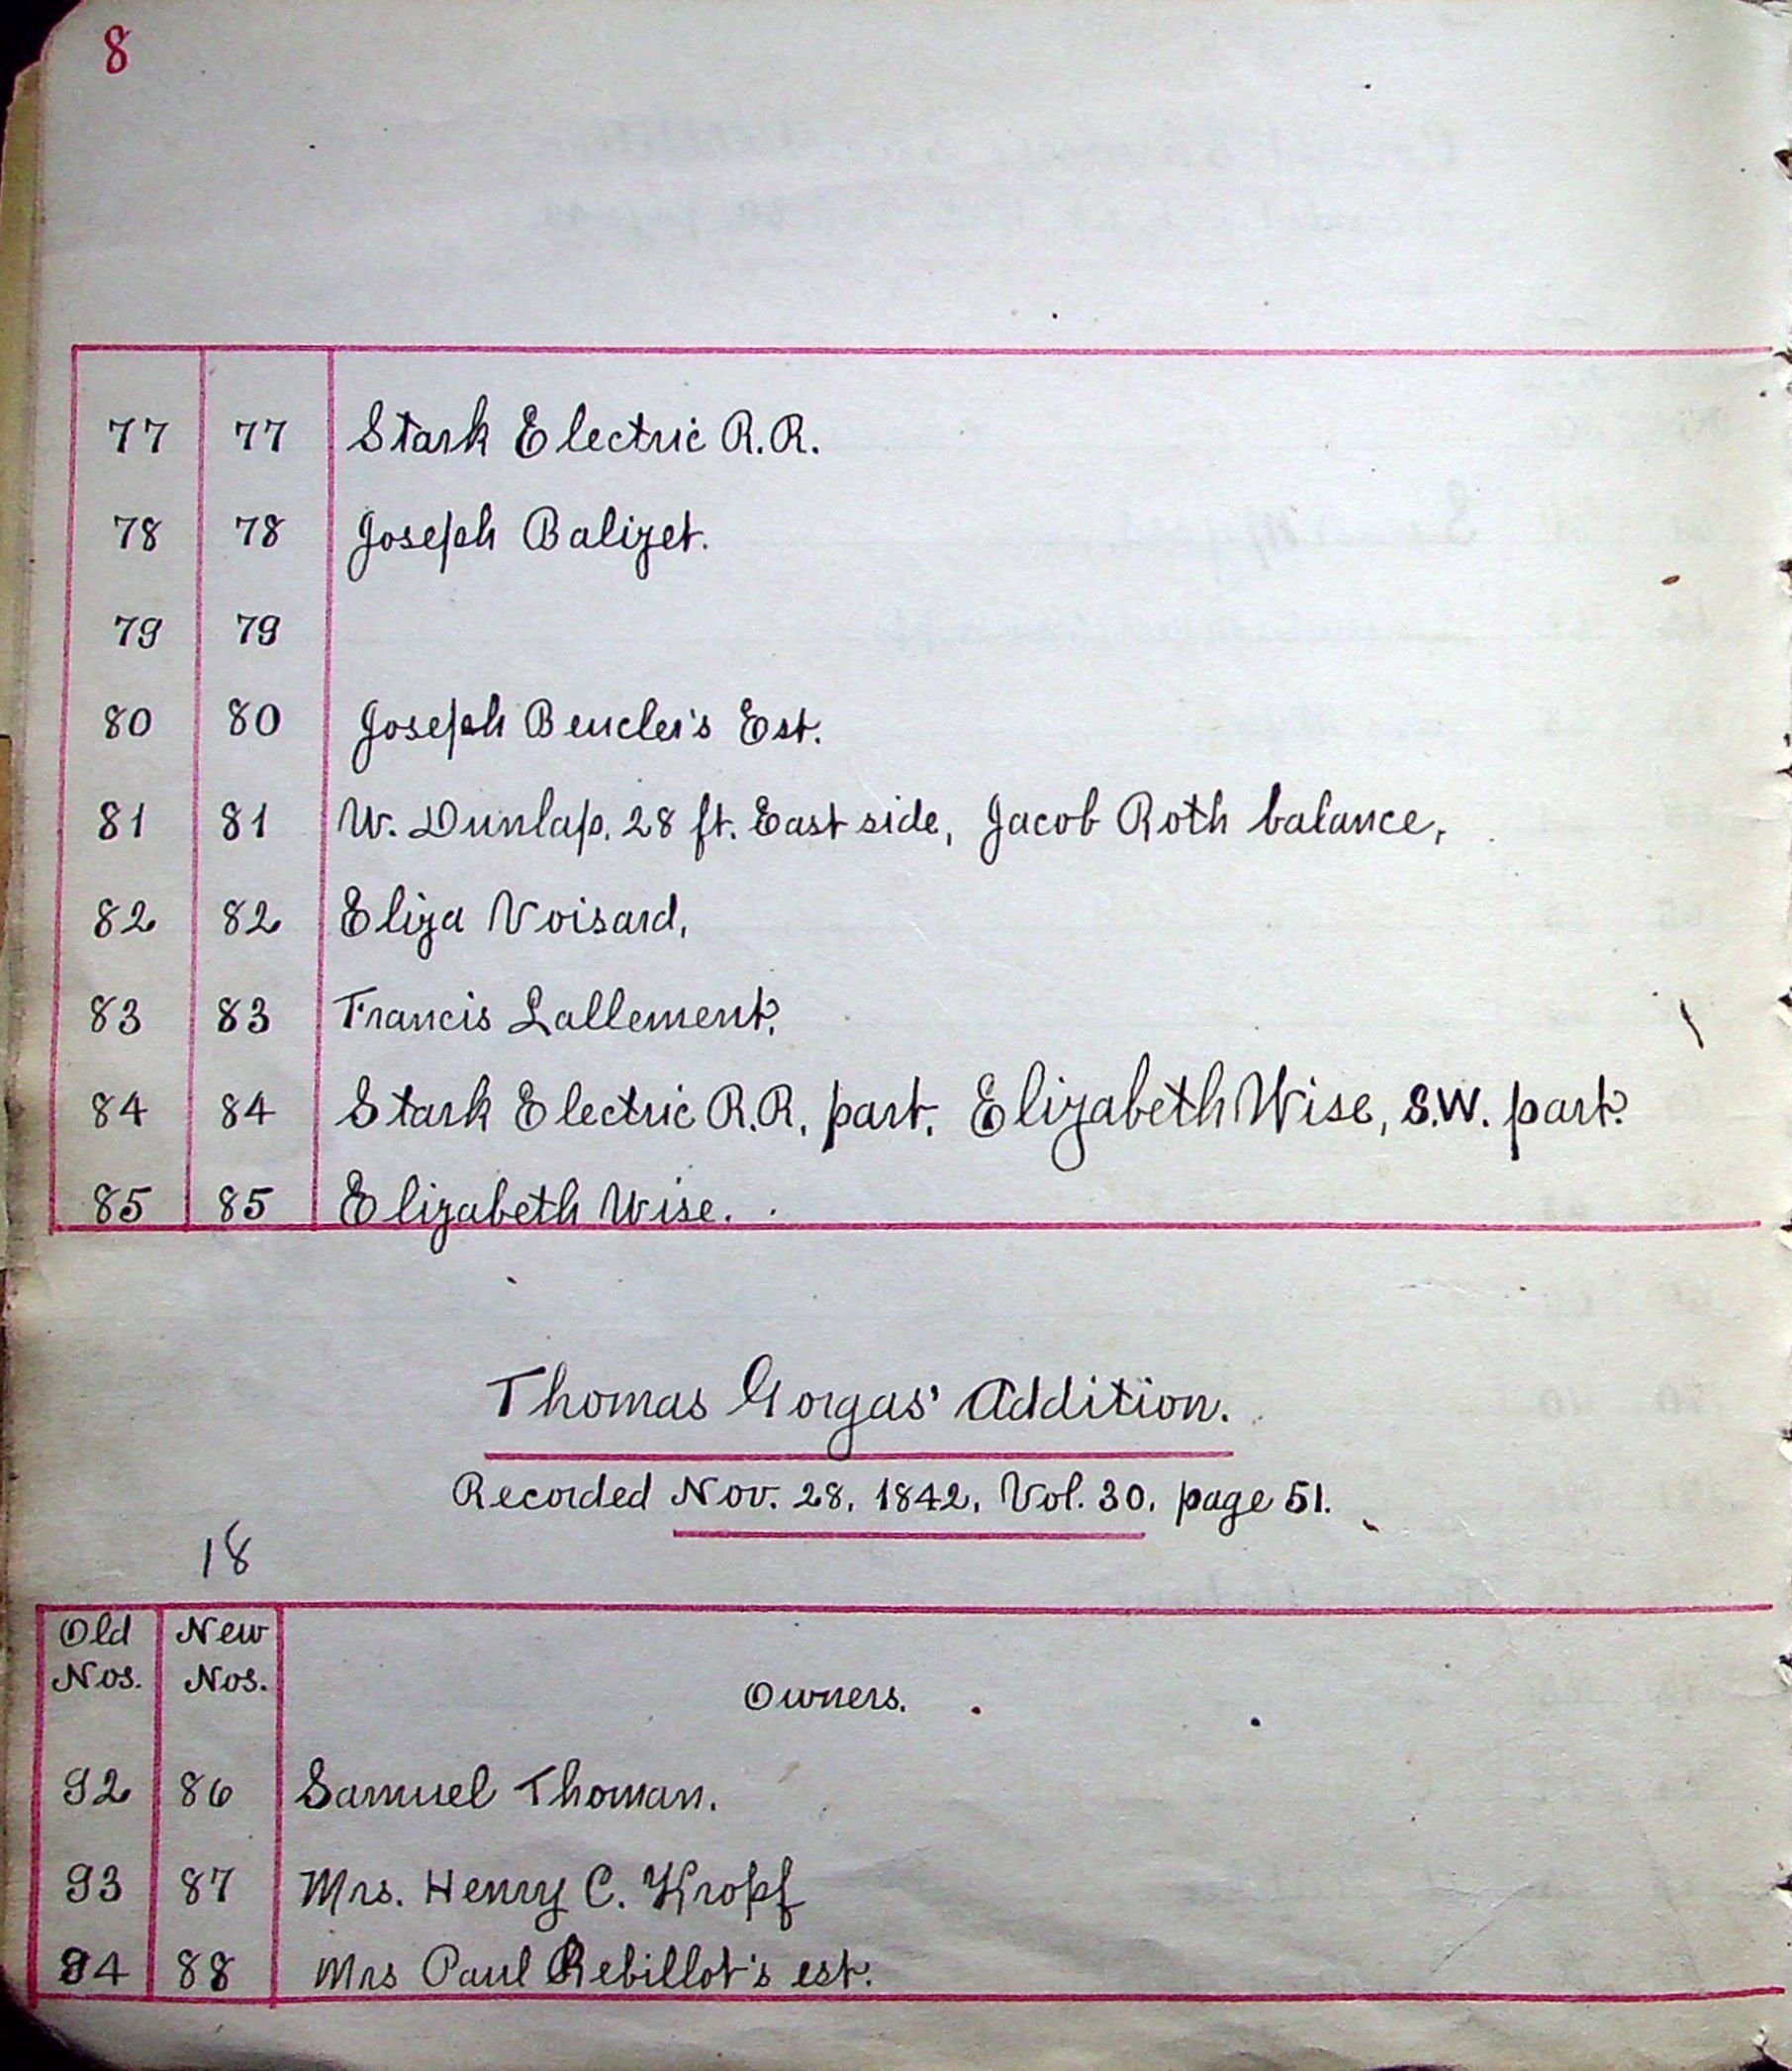 8
77 77 Stark Electric R.R.
78 78 Joseph Balizet.
79 79
80 80 Joseph Beucler's Est.
81 81 W. Dunlap. 28 ft. East side, Jacob Roth balance,
82 82 Eliza Voisard,
83 83 Francis Lallement.
84 84 Stark Electric R.R. part. Elizabeth Wise, S.W. part.
85 85 Elizabeth Wise.
Thomas Gorgas' Addition.
Recorded Nov. 28, 1842, Vol. 30, page 51.
18
Old New
Nos. Nos. Owners.
92 86 Samuel Thoman.
93 87 Mrs. Henry C. Kropf
94 88 Mrs Paul Rebillot's est.